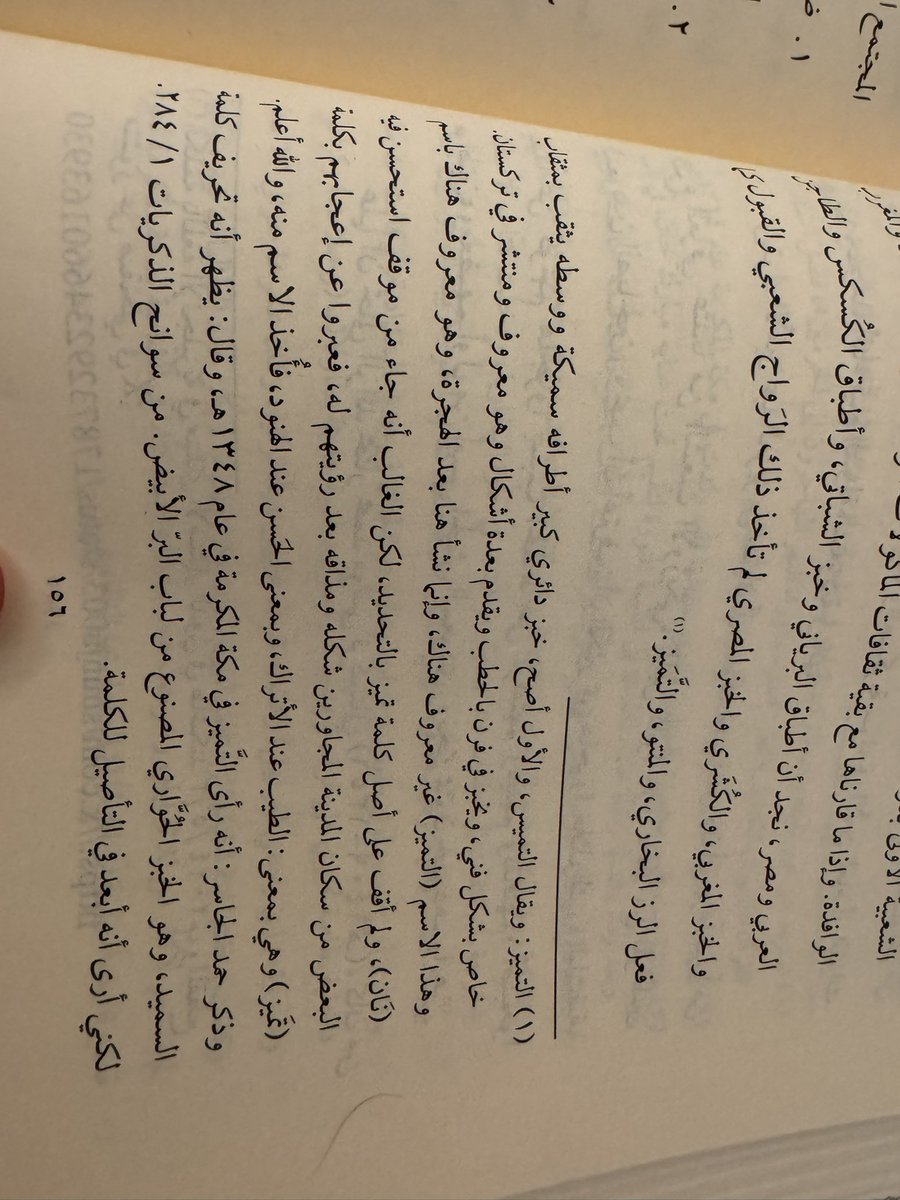 المجتمع
١. 
٢.
الشعبية الأولى
بقية ثقافات المأكولات
الوافدة. وإذا ما قارناها مع
العربي ومصر، نجد أن أطباق البرياني وخبز الشباتي، وأطباق الكُسكس والطاجن
والخبز المغربي، والكُشَري والخبز المصري لم تأخذ ذلك الرَواج الشعبي والقبول
فعل الرز البخاري، والمنتو، والتَّمَيز.(١)
(١) التميز: ويقال التميس، والأول أصح، خبز دائري كبير أطرافه سميكة ووسطه يثقب بمثقاب
خاص بشكل فني، ويخبز في فرن بالحطب ويقدم بعدة أشكال وهو معروف ومنتشر في تركستان.
وهذا الاسم (التميز) غير معروف هناك، وإنما نشأ هنا بعد الهجرة، وهو معروف هناك باسم
(نَان)، ولم أقف على أصل كلمة تميز بالتحديد، لكن الغالب أنه جاء من موقف استحسن فيه
البعض من سكان المدينة المجاورين شكله ومذاقه بعد رؤيتهم له، فعبروا عن إعجابهم بكلمة
(تَميز) وهي بمعنى: الطيب عند الأتراك، وبمعنى الحَسن عند الهنود، فأُخذ الاسم منه، والله أعلم.
وذكر حمد الجاسر: أنه رأى التَّميز في مكة المكرمة في عام ١٣٤٨هـ، وقال: يظهر أنه تحريف كلمة
السميد، وهو الخبز الحُوَّاري المصنوع من لباب البرّ الأبيض. من سوانح الذكريات ١/ ٢٨٤.
لكني أرى أنه أبعد في التأصيل للكلمة.
١٥٦